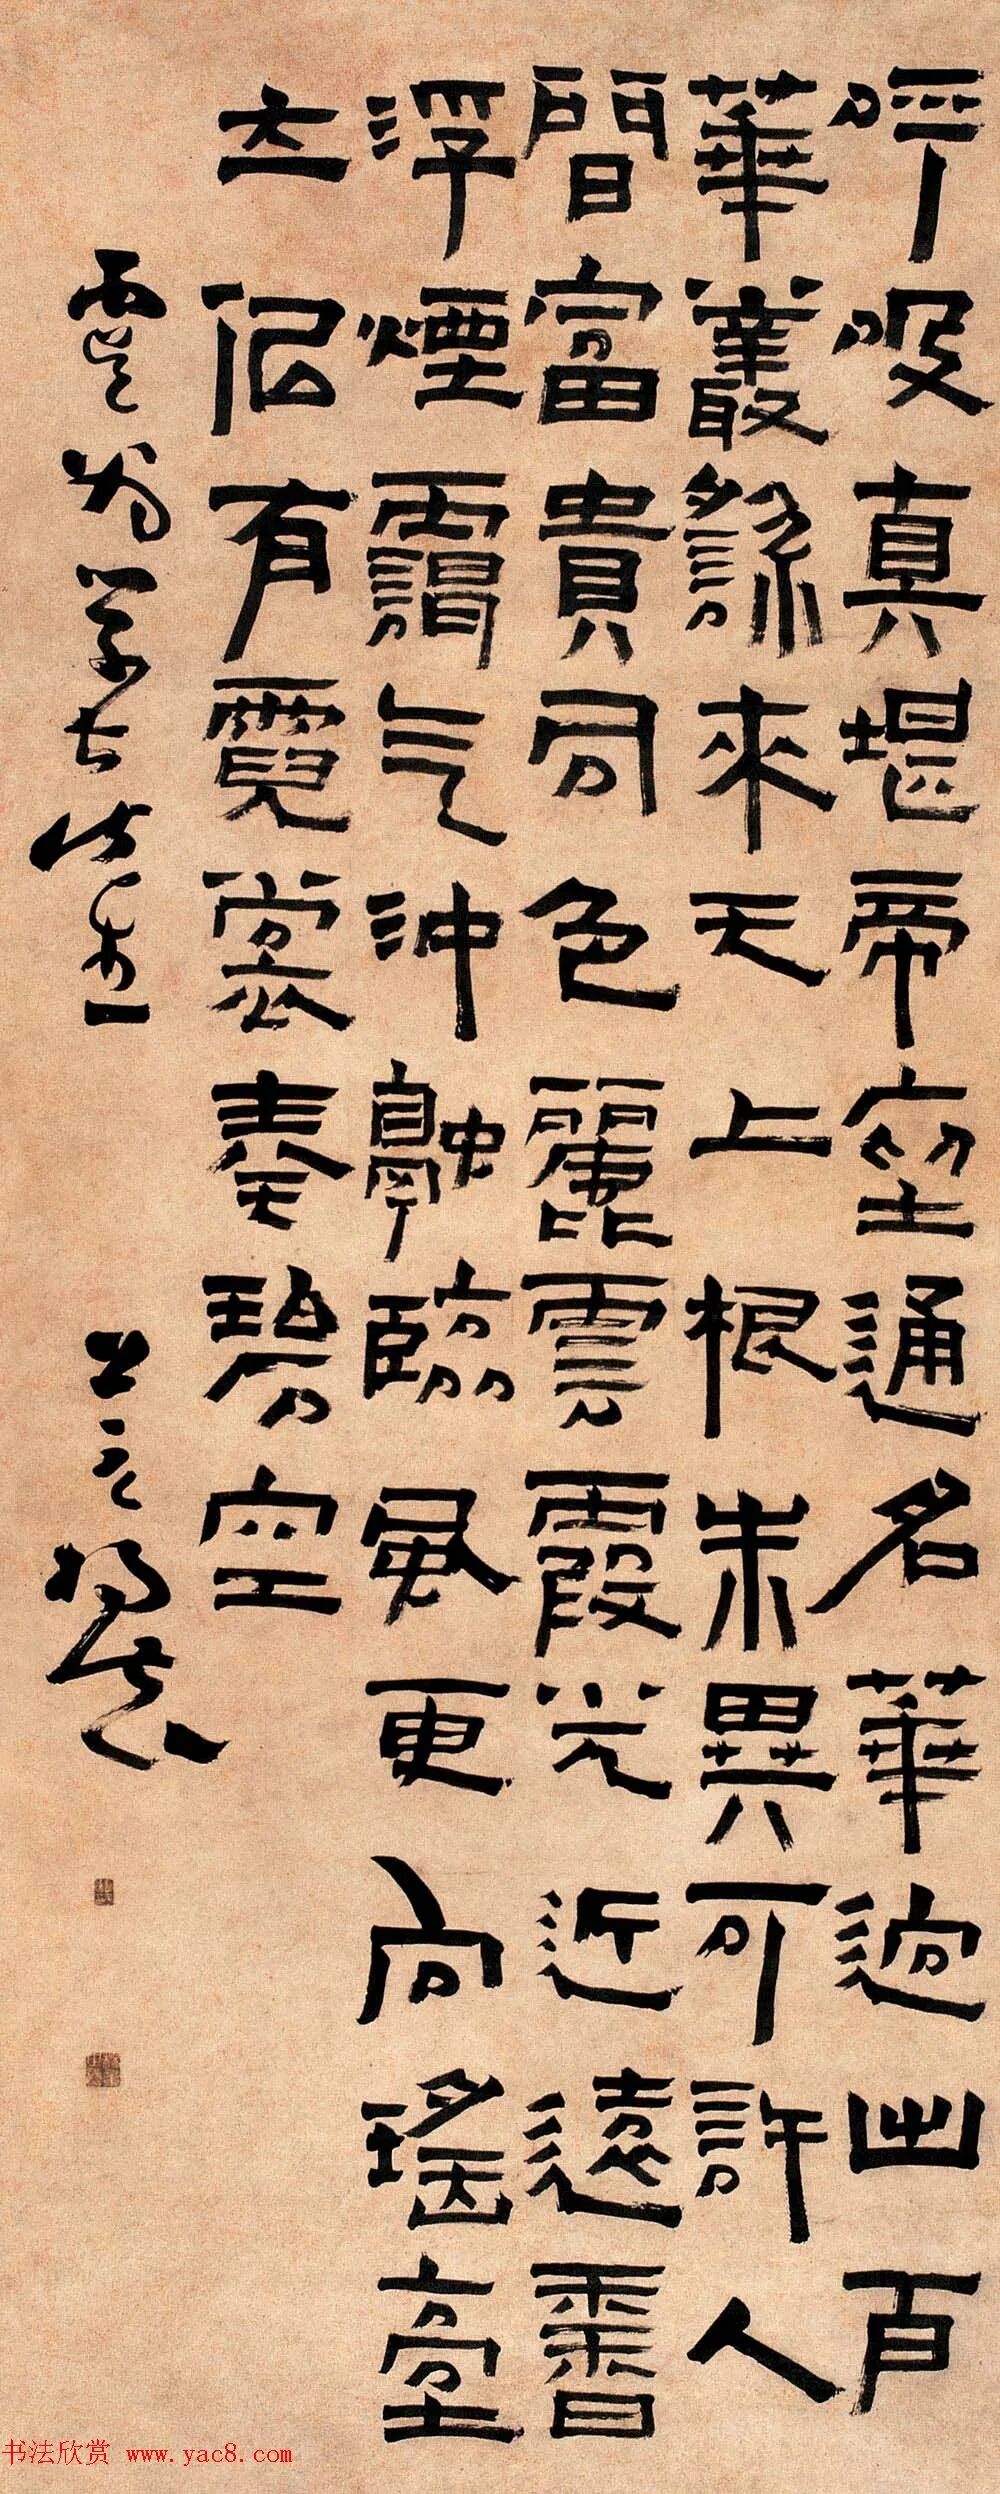 呼吸真堪帝座通名華迥出百
華叢繇來天上根朱異可許人
間富貴同色麗雲霞光近遠香
浮煙靄气沖融臨風更向瑤臺
立似有霓裳奏碧空
书法欣赏 www.yac8.com